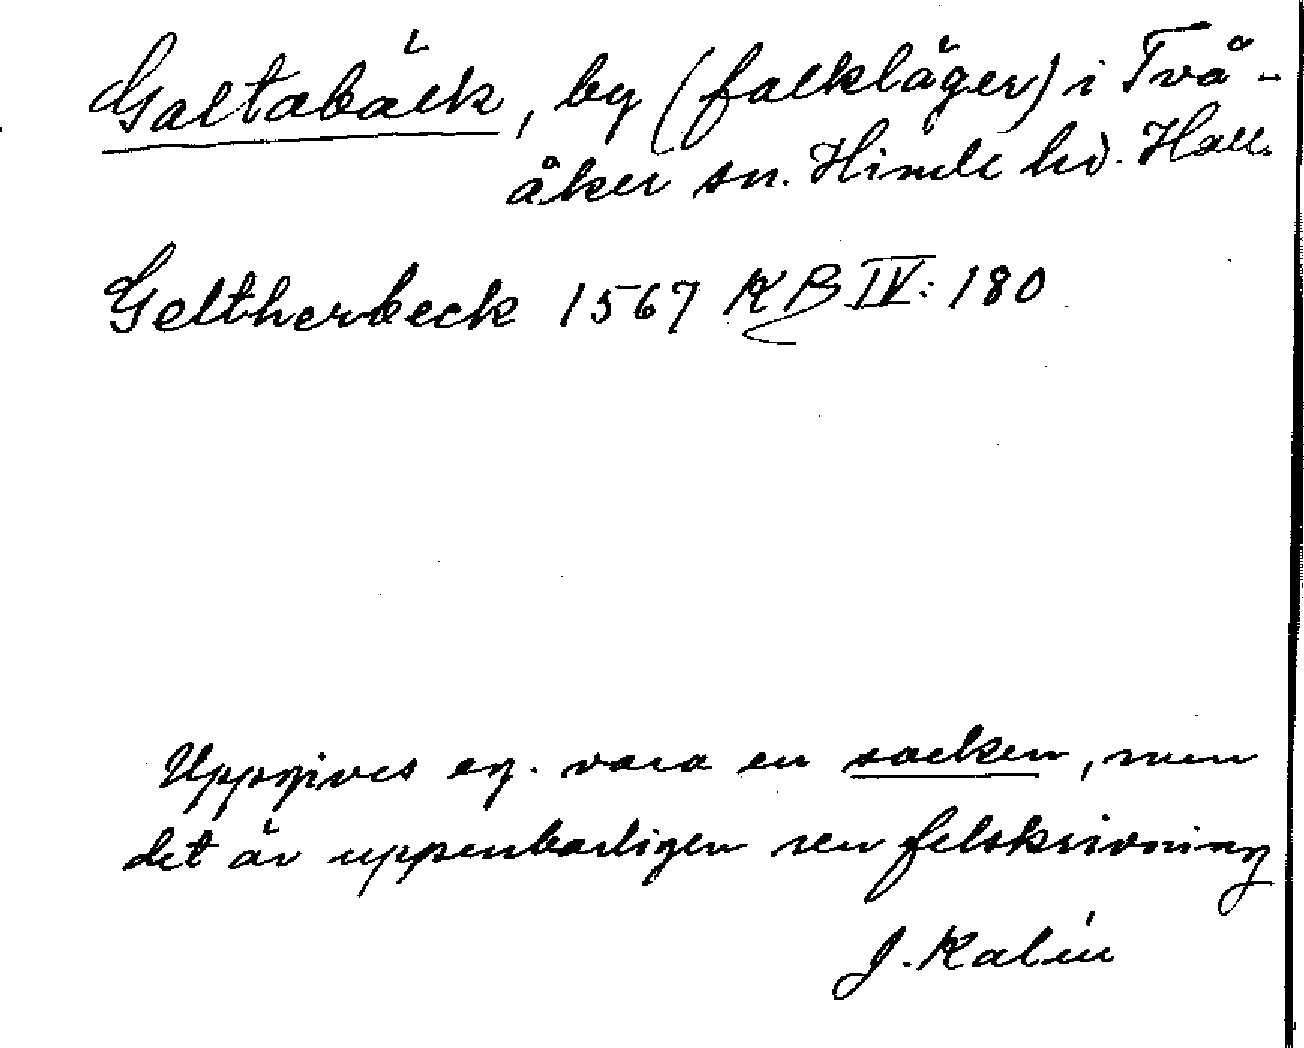 Galtabäck, by (falkläger) i Två-
åker sn. Himle hd. Hall.
Geltherbeck 1567 KB IV: 180
Uppgives eg. vara en socken, men
det är uppenbarligen ren felskrivning
J. Kalén